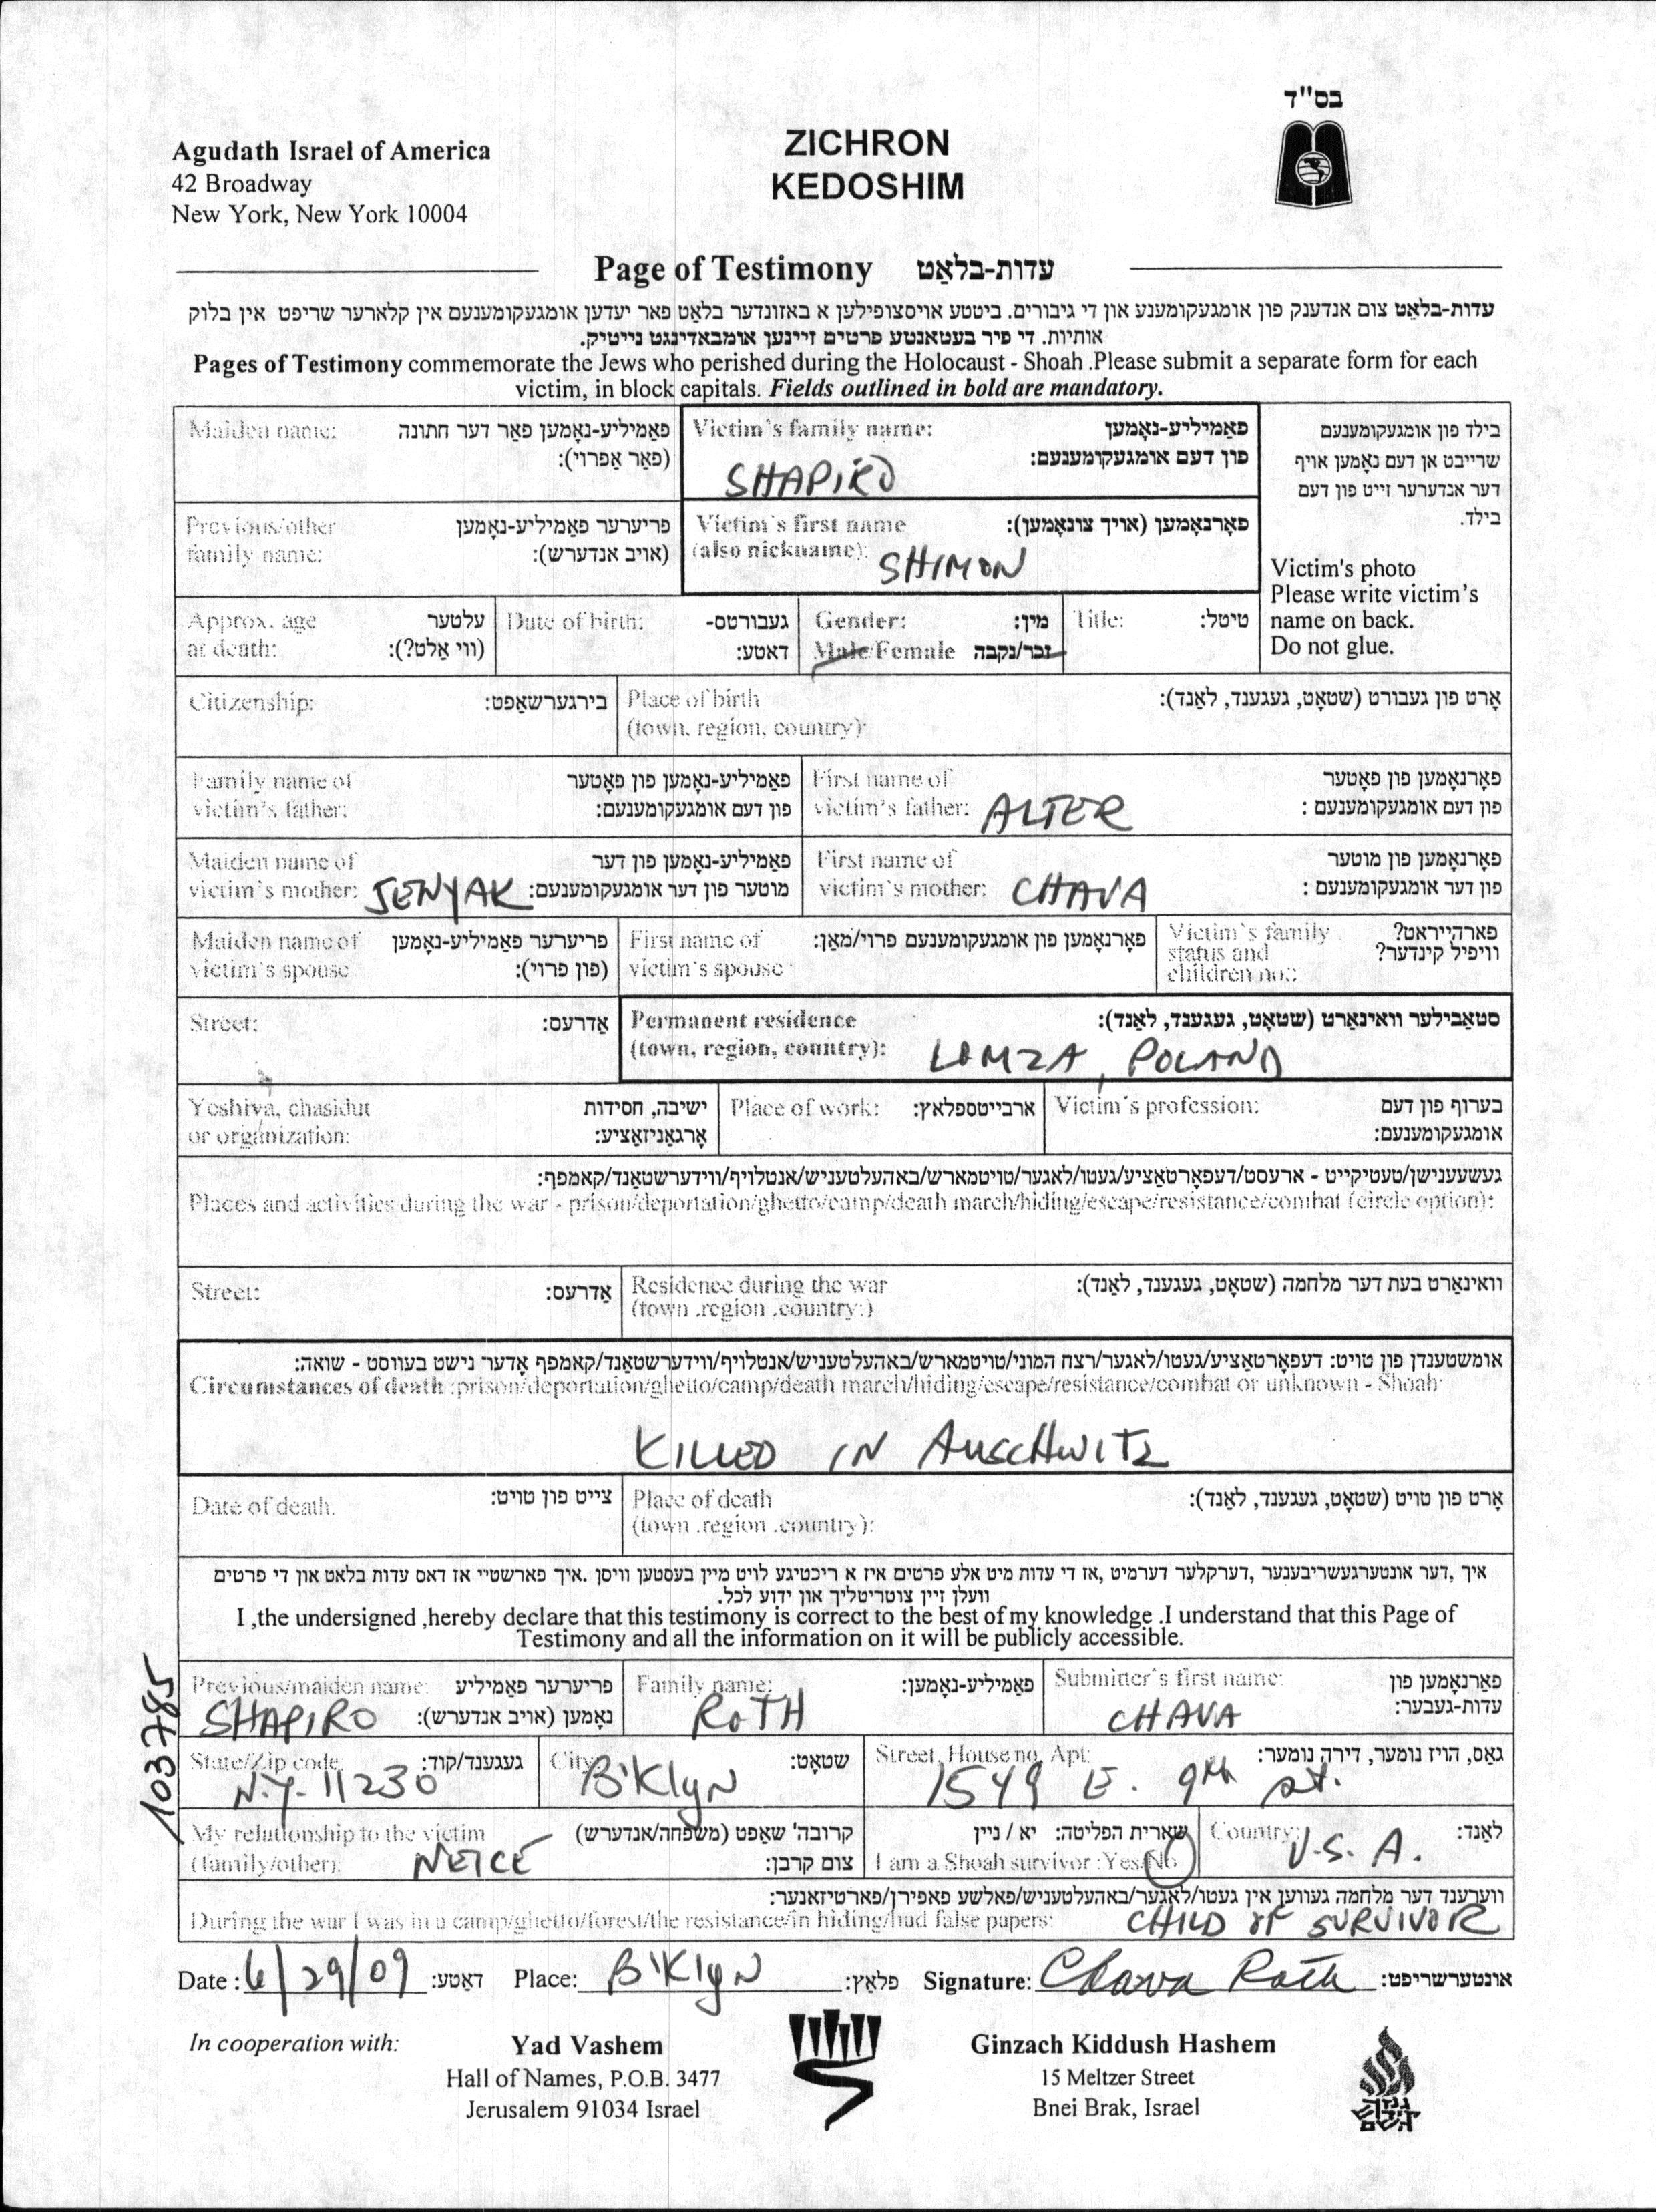 בס"ד
Agudath Israel of America
42 Broadway
New York, New York 10004
ZICHRON
KEDOSHIM
Page of Testimony עדות-בלאַט
עדות-בלאַט צום אנדענק פון אומגעקומענע און די גיבורים. ביטטע אויסצופילען א באזונדער בלאַט פאר יעדען אומגעקומענעם אין קלארער שריפט אין בלוק
אותיות. די פיר בעטאנטע פרטים זיינען אומבאדינגט נייטיק.
Pages of Testimony commemorate the Jews who perished during the Holocaust - Shoah .Please submit a separate form for each
victim, in block capitals. Fields outlined in bold are mandatory.
Maiden name: פאַמיליע-נאָמען פאַר דער חתונה
(פאַר אַפרוי):
Victim's family name: פאַמיליע-נאָמען
פון דעם אומגעקומענעם:
SHAPIRO
בילד פון אומגעקומענעם
שרייבט אן דעם נאָמען אויף
דער אנדערער זייט פון דעם
בילד.
Victim's photo
Please write victim's
name on back.
Do not glue.
Previous/other פריערער פאַמיליע-נאָמען
family name: (אויב אנדערש):
Victim's first name פאָרנאָמען (אויך צונאָמען):
(also nickname): SHIMON
Approx. age עלטער
at death: (ווי אַלט?):
Date of birth: געבורטס-
דאטע:
Gender: מין:
Male/Female זכר/נקבה
Title: טיטל:
Citizenship: בירגערשאַפט:
Place of birth אָרט פון געבורט (שטאָט, געגענד, לאַנד):
(town, region, country):
Family name of פאַמיליע-נאָמען פון פאָטער
victim's father: פון דעם אומגעקומענעם:
First name of פאָרנאָמען פון פאָטער
victim's father: ALTER פון דעם אומגעקומענעם :
Maiden name of פאַמיליע-נאָמען פון דער
victim's mother: JENYAK מוטער פון דער אומגעקומענעם:
First name of פאָרנאָמען פון מוטער
victim's mother: CHAVA פון דער אומגעקומענעם :
Maiden name of פריערער פאַמיליע-נאָמען
victim's spouse (פון פרוי):
First name of פאָרנאָמען פון אומגעקומענעם פרוי/מאַן:
victim's spouse :
Victim's family פארהייראט?
status and וויפיל קינדער?
children no.:
Street: אַדרעס:
Permanent residence סטאַבילער וואינארט (שטאָט, געגענד, לאַנד):
(town, region, country): LOMZA, POLAND
Yeshiva, chasidut ישיבה, חסידות
or organization: אָרגאַניזאַציע:
Place of work: ארבייטספלאץ:
Victim's profession: בערוף פון דעם
אומגעקומענעם:
געשעענישן/טעטיקייט - ארעסט/דעפאָרטאַציע/געטו/לאגער/טויטמארש/באהעלטעניש/אנטלויף/ווידערשטאַנד/קאמפף:
Places and activities during the war - prison/deportation/ghetto/camp/death march/hiding/escape/resistance/combat (circle option):
Street: אַדרעס:
Residence during the war וואינאַרט בעת דער מלחמה (שטאָט, געגענד, לאַנד):
(town .region .country:)
אומשטענדן פון טויט: דעפאָרטאַציע/געטו/לאגער/רצח המוני/טויטמארש/באהעלטעניש/אנטלויף/ווידערשטאַנד/קאמפף אָדער נישט בעוווסט - שואה:
Circumstances of death :prison/deportation/ghetto/camp/death march/hiding/escape/resistance/combat or unknown - Shoah:
KILLED IN AUSCHWITZ
Date of death. צייט פון טויט:
Place of death אָרט פון טויט (שטאָט, געגענד, לאַנד):
(town .region .country):
איך ,דער אונטערגעשריבענער ,דערקלער דערמיט ,אז די עדות מיט אלע פרטים איז א ריכטיגע לויט מיין בעסטען וויסן .איך פארשטיי אז דאס עדות בלאט און די פרטים
וועלן זיין צוטריטליך און ידוע לכל.
I ,the undersigned ,hereby declare that this testimony is correct to the best of my knowledge .I understand that this Page of
Testimony and all the information on it will be publicly accessible.
103785
Previous/maiden name: פריערער פאַמיליע
SHAPIRO נאָמען (אויב אנדערש):
Family name: פאַמיליע-נאָמען:
ROTH
Submitter's first name: פאַרנאָמען פון
עדות-געבער:
CHAVA
State/Zip code: געגענד/קוד:
N.Y. 11230
City: שטאָט:
B'KlyN
Street, House no, Apt: גאַס, הויז נומער, דירה נומער:
1549 E. 9th st.
My relationship to the victim קרובה' שאַפט (משפחה/אנדערש)
(family/other): NEICE צום קרבן:
שארית הפליטה: יא / ניין
I am a Shoah survivor :Yes/No
Country: לאַנד:
U.S. A.
ווערענד דער מלחמה געווען אין געטו/לאַגער/באהעלטעניש/פאלשע פאפירן/פארטיזאנער:
During the war I was in a camp/ghetto/forest/the resistance/in hiding/had false papers: CHILD OF SURVIVOR
Date : 6/29/09 דאַטע: Place: B'KlyN פלאַץ: Signature: Chava Roth אונטערשריפט:
In cooperation with:
Yad Vashem
Hall of Names, P.O.B. 3477
Jerusalem 91034 Israel
Ginzach Kiddush Hashem
15 Meltzer Street
Bnei Brak, Israel
גנזך
קידוש
השם